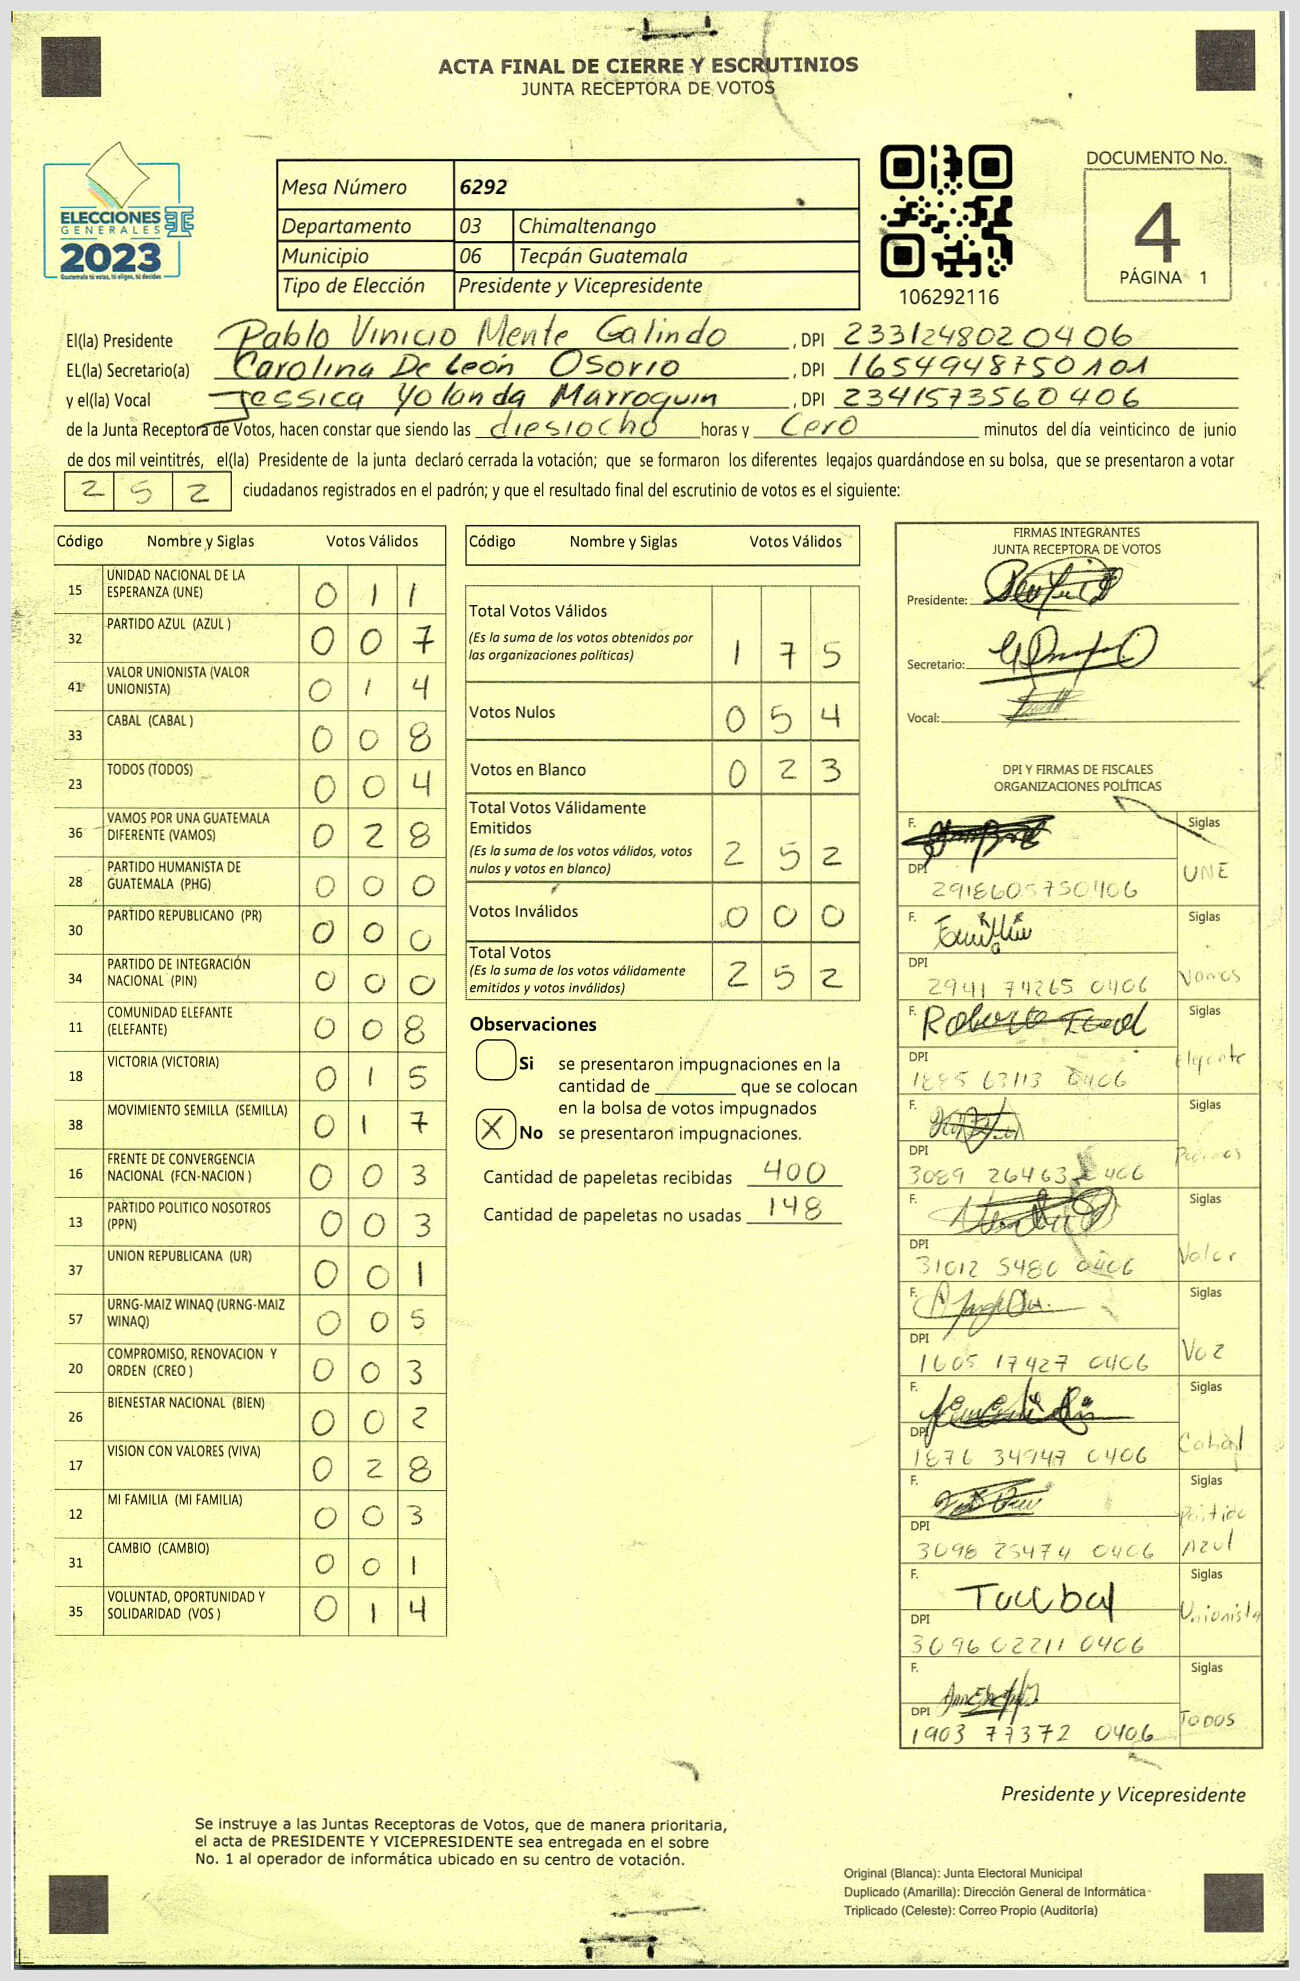 ACTA FINAL DE CIERRE Y ESCRUTINIOS
JUNTA RECEPTORA DE VOTOS
ELECCIONES
GENERALES
2023
Guatemala tú votas, tú eliges, tú decides
Mesa Número 6292
Departamento 03 Chimaltenango
Municipio 06 Tecpán Guatemala
Tipo de Elección Presidente y Vicepresidente
106292116
DOCUMENTO No.
4
PÁGINA 1
El(la) Presidente Pablo Vinicio Mente Galindo, DPI 2331248020406
EL(la) Secretario(a) Carolina De León Osorio, DPI 1654948750101
y el(la) Vocal Jessica Yolanda Marroquin, DPI 2341573560406
de la Junta Receptora de Votos, hacen constar que siendo las diesiocho horas y Cero minutos del día veinticinco de junio
de dos mil veintitrés, el(la) Presidente de la junta declaró cerrada la votación; que se formaron los diferentes legajos guardándose en su bolsa, que se presentaron a votar
252 ciudadanos registrados en el padrón; y que el resultado final del escrutinio de votos es el siguiente:
Código Nombre y Siglas Votos Válidos
15 UNIDAD NACIONAL DE LA ESPERANZA (UNE) 011
32 PARTIDO AZUL (AZUL ) 007
41 VALOR UNIONISTA (VALOR UNIONISTA) 014
33 CABAL (CABAL ) 008
23 TODOS (TODOS) 004
36 VAMOS POR UNA GUATEMALA DIFERENTE (VAMOS) 028
28 PARTIDO HUMANISTA DE GUATEMALA (PHG) 000
30 PARTIDO REPUBLICANO (PR) 000
34 PARTIDO DE INTEGRACIÓN NACIONAL (PIN) 000
11 COMUNIDAD ELEFANTE (ELEFANTE) 008
18 VICTORIA (VICTORIA) 015
38 MOVIMIENTO SEMILLA (SEMILLA) 017
16 FRENTE DE CONVERGENCIA NACIONAL (FCN-NACION ) 003
13 PARTIDO POLITICO NOSOTROS (PPN) 003
37 UNION REPUBLICANA (UR) 001
57 URNG-MAIZ WINAQ (URNG-MAIZ WINAQ) 005
20 COMPROMISO, RENOVACION Y ORDEN (CREO ) 003
26 BIENESTAR NACIONAL (BIEN) 002
17 VISION CON VALORES (VIVA) 028
12 MI FAMILIA (MI FAMILIA) 003
31 CAMBIO (CAMBIO) 001
35 VOLUNTAD, OPORTUNIDAD Y SOLIDARIDAD (VOS ) 014
Código Nombre y Siglas Votos Válidos
Total Votos Válidos 175
(Es la suma de los votos obtenidos por
las organizaciones políticas)
Votos Nulos 054
Votos en Blanco 023
Total Votos Válidamente
Emitidos 252
(Es la suma de los votos válidos, votos
nulos y votos en blanco)
Votos Inválidos 000
Total Votos 252
(Es la suma de los votos válidamente
emitidos y votos inválidos)
Observaciones
Si se presentaron impugnaciones en la
cantidad de ________ que se colocan
en la bolsa de votos impugnados
X No se presentaron impugnaciones.
Cantidad de papeletas recibidas 400
Cantidad de papeletas no usadas 148
FIRMAS INTEGRANTES
JUNTA RECEPTORA DE VOTOS
Presidente:
Secretario:
Vocal:
DPI Y FIRMAS DE FISCALES
ORGANIZACIONES POLÍTICAS
F. Siglas
DPI 2918605750406 UNE
F. Siglas
DPI 2941 74265 0406 Vamos
F. Roberto Siglas
DPI 1885 63113 0406 Elefante
F. Siglas
DPI 3089 26463 0406
F. Siglas
DPI 31012 5480 0406 Valor
F. Siglas
DPI 1605 17427 0406 Voz
F. Siglas
DPI 1876 34947 0406 Cabal
F. Siglas
DPI 3098 25474 0406 Partido Azul
F. Siglas
DPI 3096 02211 0406 Unionista
F. Siglas
DPI 1903 77372 0406 TODOS
Presidente y Vicepresidente
Se instruye a las Juntas Receptoras de Votos, que de manera prioritaria,
el acta de PRESIDENTE Y VICEPRESIDENTE sea entregada en el sobre
No. 1 al operador de informática ubicado en su centro de votación.
Original (Blanca): Junta Electoral Municipal
Duplicado (Amarilla): Dirección General de Informática
Triplicado (Celeste): Correo Propio (Auditoría)